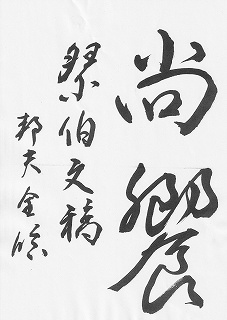 尚饗
祭伯文稿
邦夫全临